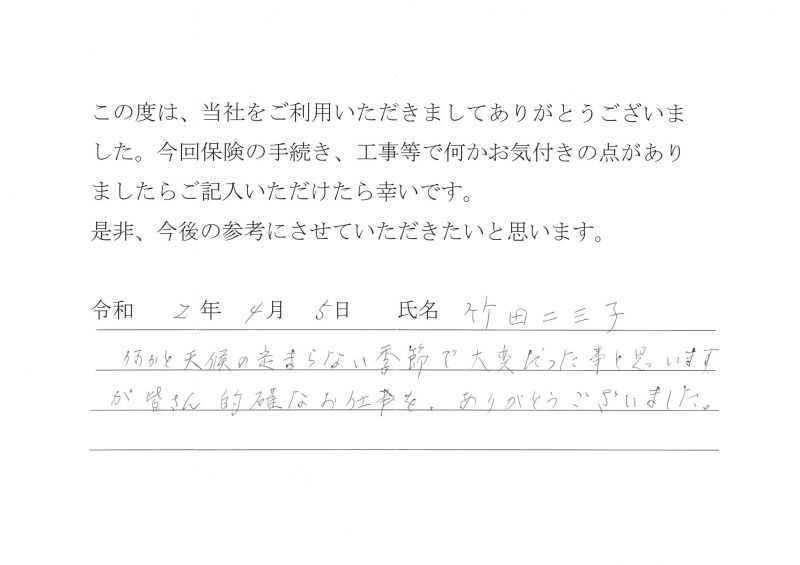 この度は、当社をご利用いただきましてありがとうございま
した。今回保険の手続き、工事等で何かお気付きの点があり
ましたらご記入いただけたら幸いです。
是非、今後の参考にさせていただきたいと思います。
令和 2年 4月 5日 氏名 竹田二三子
何かと天候の定まらない季節で大変だった事と思います
が皆さん的確なお仕事を、ありがとうございました。